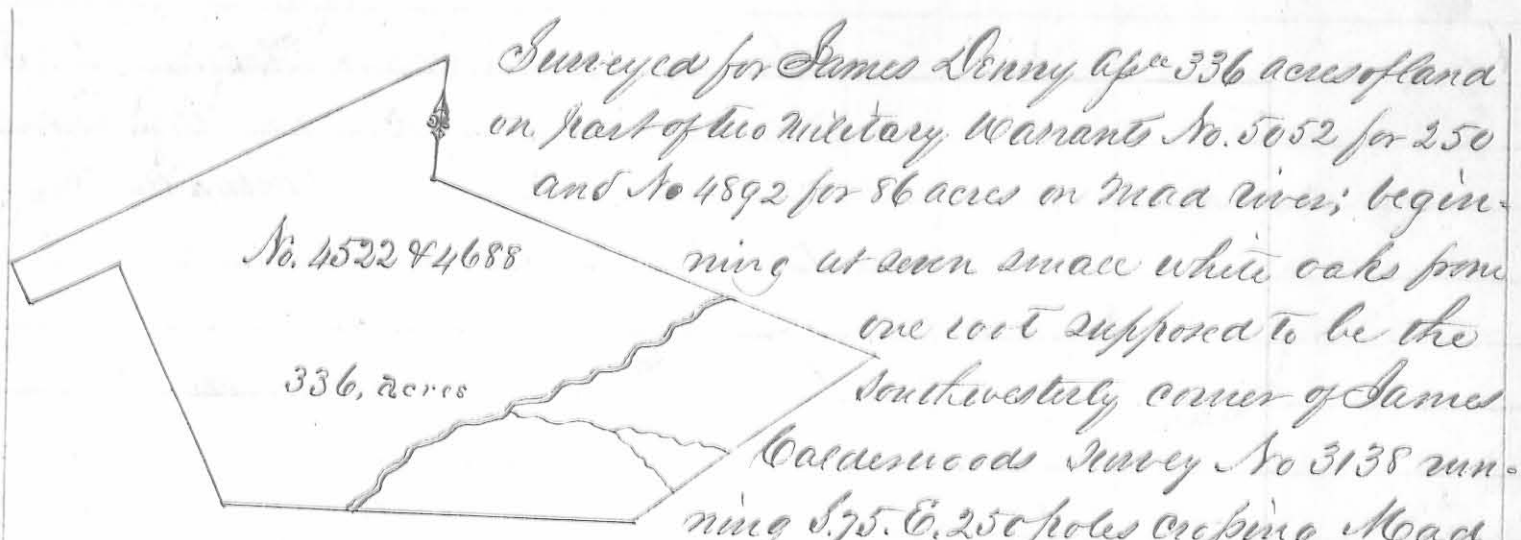 Surveyed for James Denny Assee 336 acres of land
on part of two Military Warrants No. 5052 for 250
and No 4892 for 86 acres on Mad river; begin-
No. 4522 & 4688
ning at seven small white oaks from
one root supposed to be the
336, acres
Southwesterly corner of James
Calderwoods Survey No 3138 run-
ning S.75.E. 250 poles crossing Mad